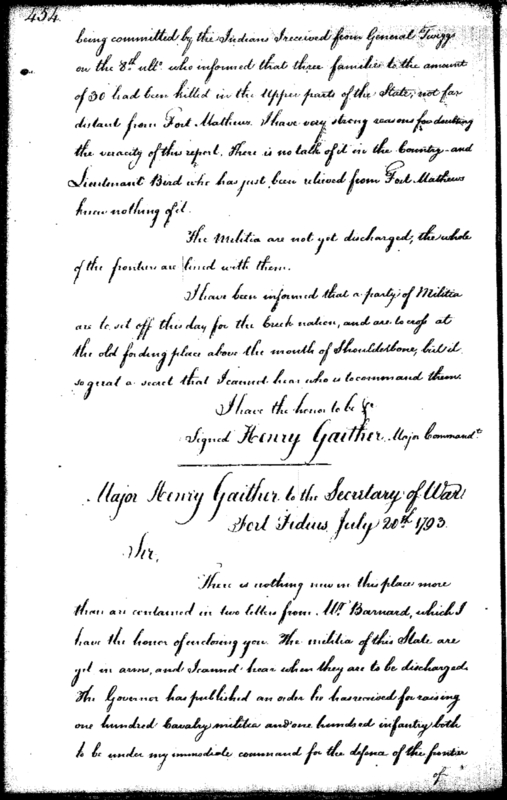 434
being committed by the Indians I received from General Twiggs
on the 8th ullo. who informed that three families to the amount
of 30 had been killed in the Upper parts of the State, not far
distant from Fort Mathews. I have very strong reasons for doubting
the veracity of this report. There is no talk of it in the Country and
Lieutenant Bird who has just been relieved from Fort Mathews
knew nothing of it.
The Militia are not yet discharged, the whole
of the frontier are lined with them.
I have been informed that a party of Militia
are to set off this day for the Creek nation, and are to cross at
the old fording place above the mouth of Shoulderbone, but it
so great a secret that I cannot hear who is to command them.
I have the honor to be &c
Signed Henry Gaither Major Commandt
Major Henry Gaither to the Secretary of War
Fort Fidius July 20th 1793
Sir,
There is nothing new in this place more
than are contained in two letters from Mr. Barnard, which I
have the honor of inclosing you. The militia of this State are
yet in arms, and I cannot hear when they are to be discharged.
The Governor has published an order he has received for raising
one hundred Cavalry militia and one hundred infantry both
to be under my immediate command for the defence of the frontier
of